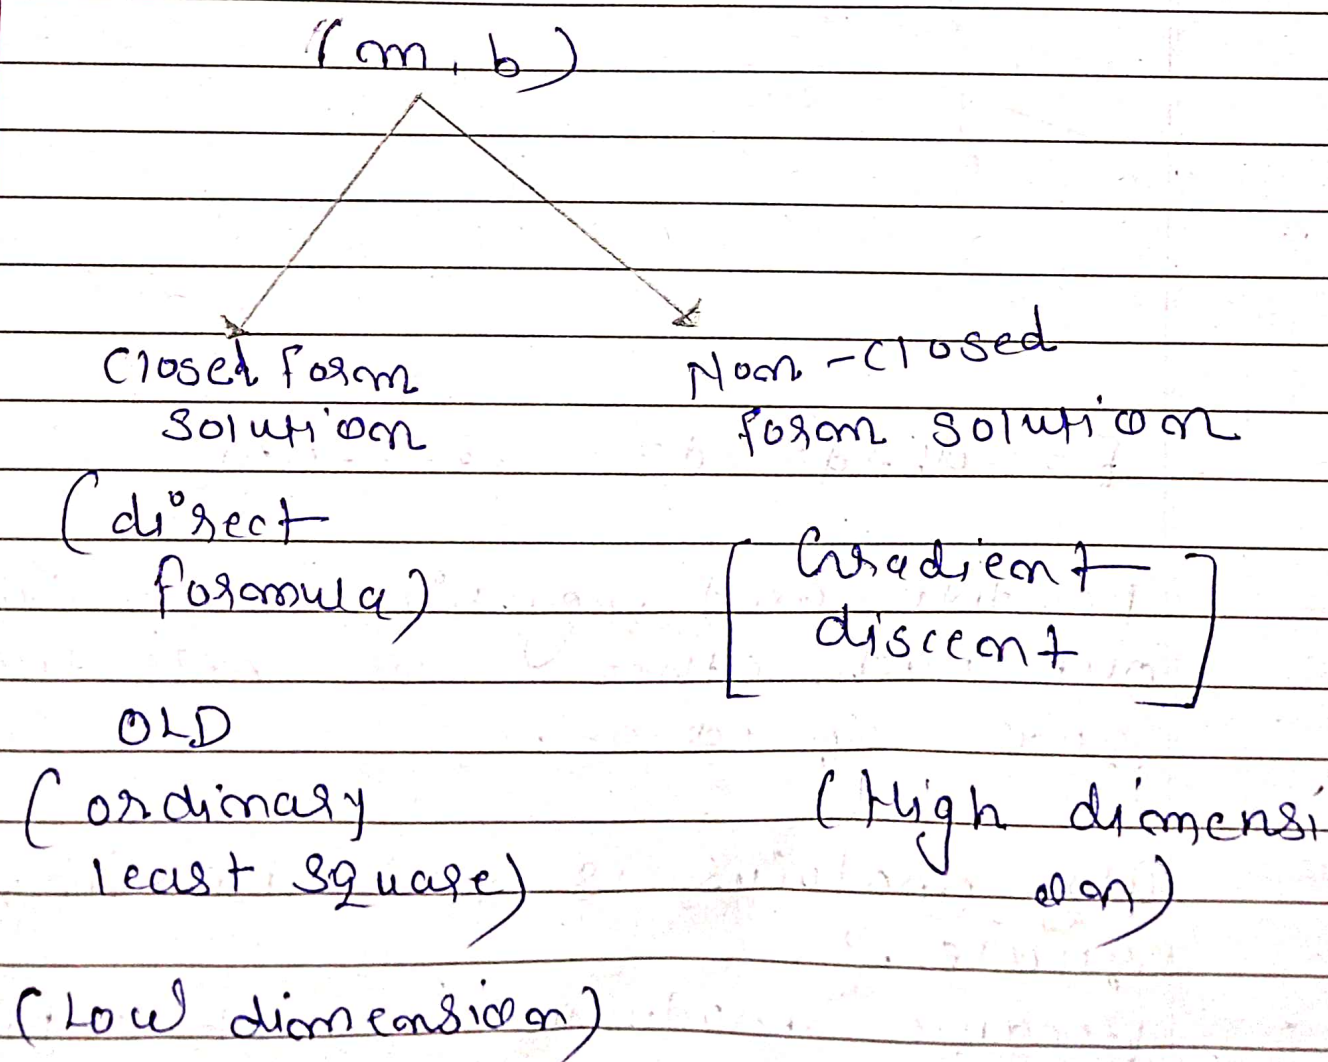 (m, b)
Closed form
solution
(direct
formula)
OLD
(ordinary
least square)
(Low dimension)
Non-closed
form solution
[Gradient
discent]
(High dimensi
on)